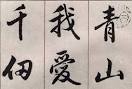 青山
我愛
千仞